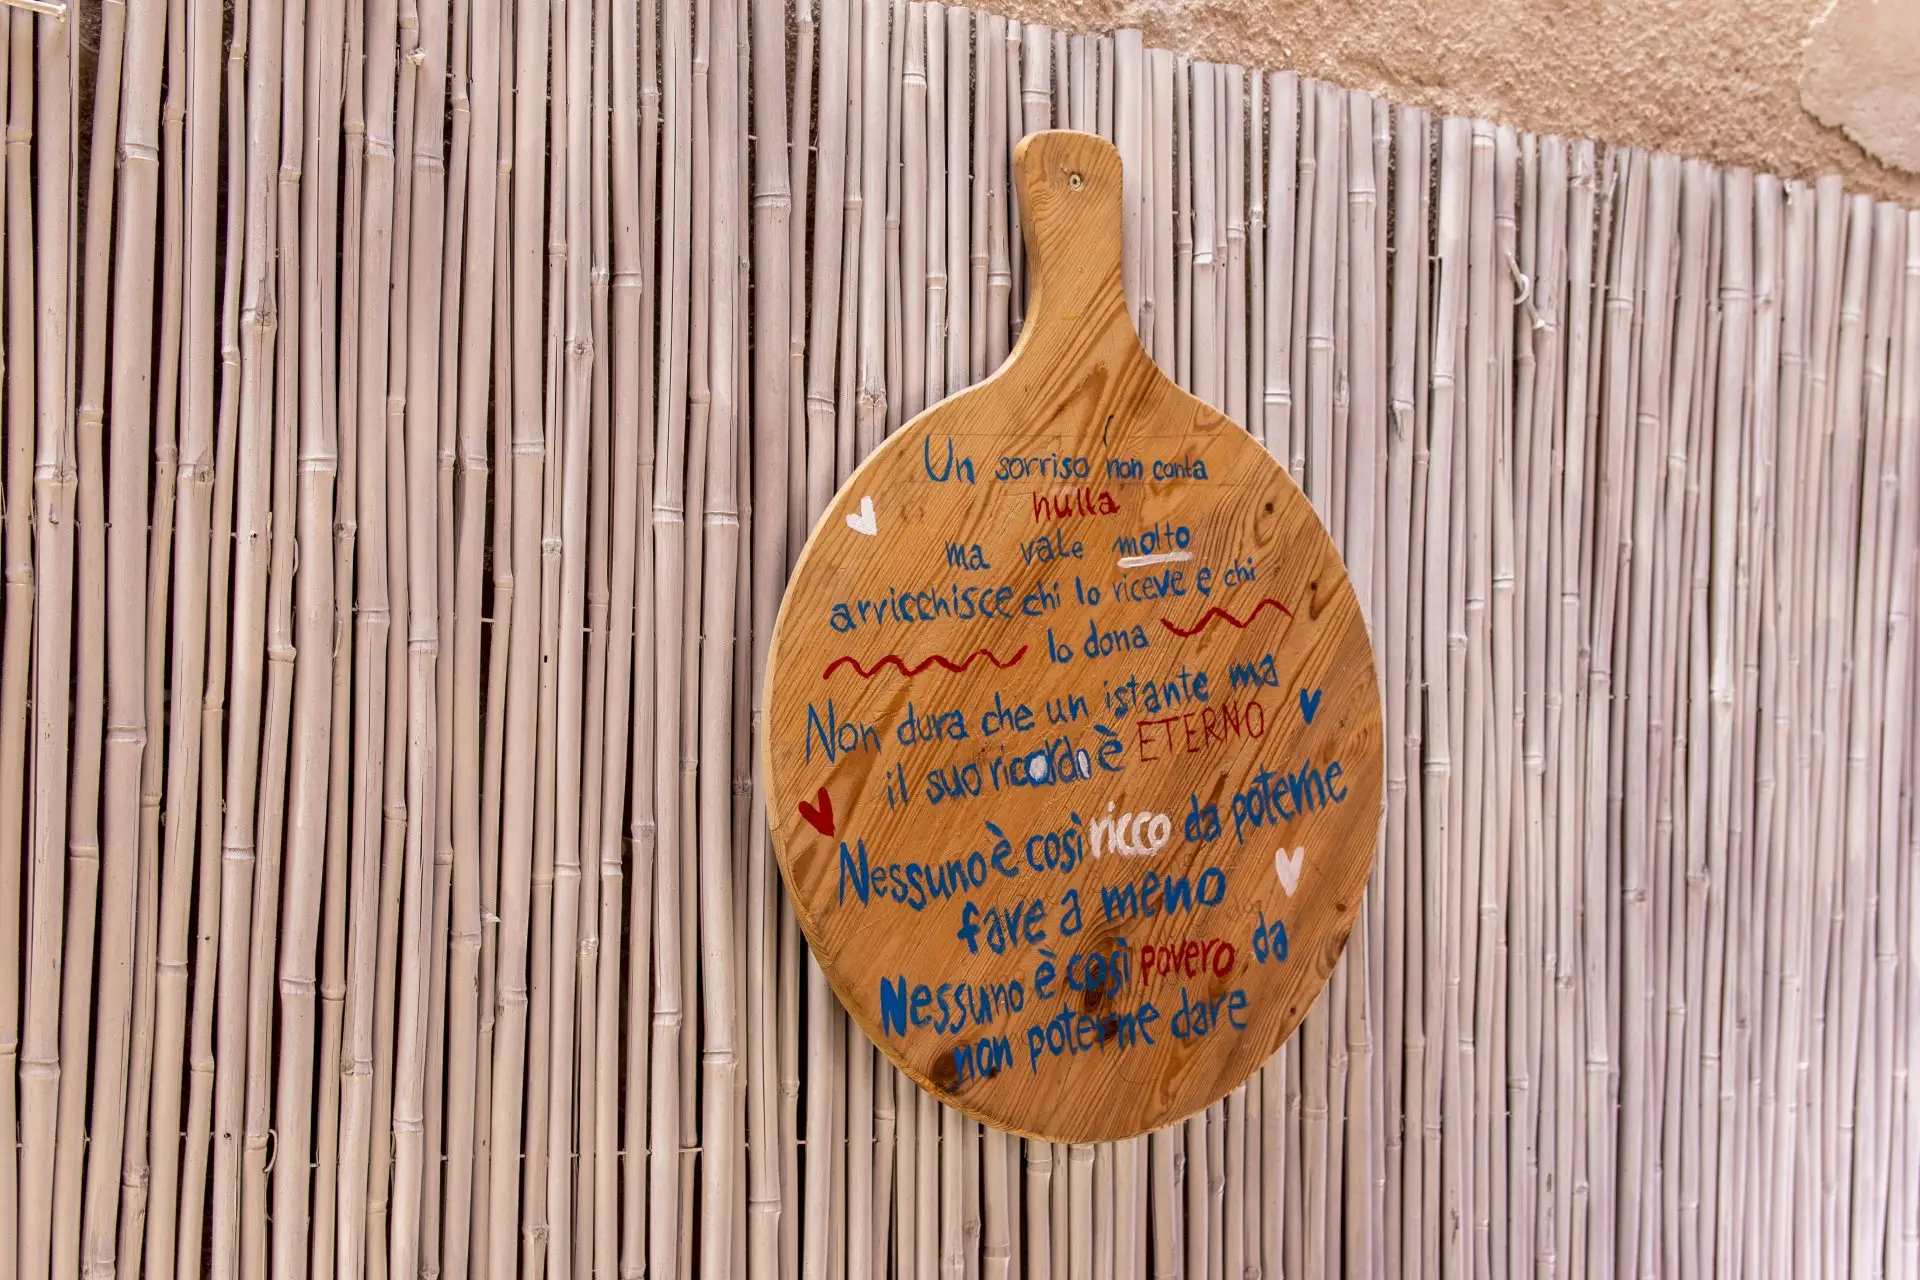 Un sorriso non conta
nulla
ma vale molto
arricchisce chi lo riceve e chi
lo dona
Non dura che un istante ma
il suo ricordo è ETERNO
Nessuno è così ricco da poterne
fare a meno
Nessuno è così povero da
non poterne dare